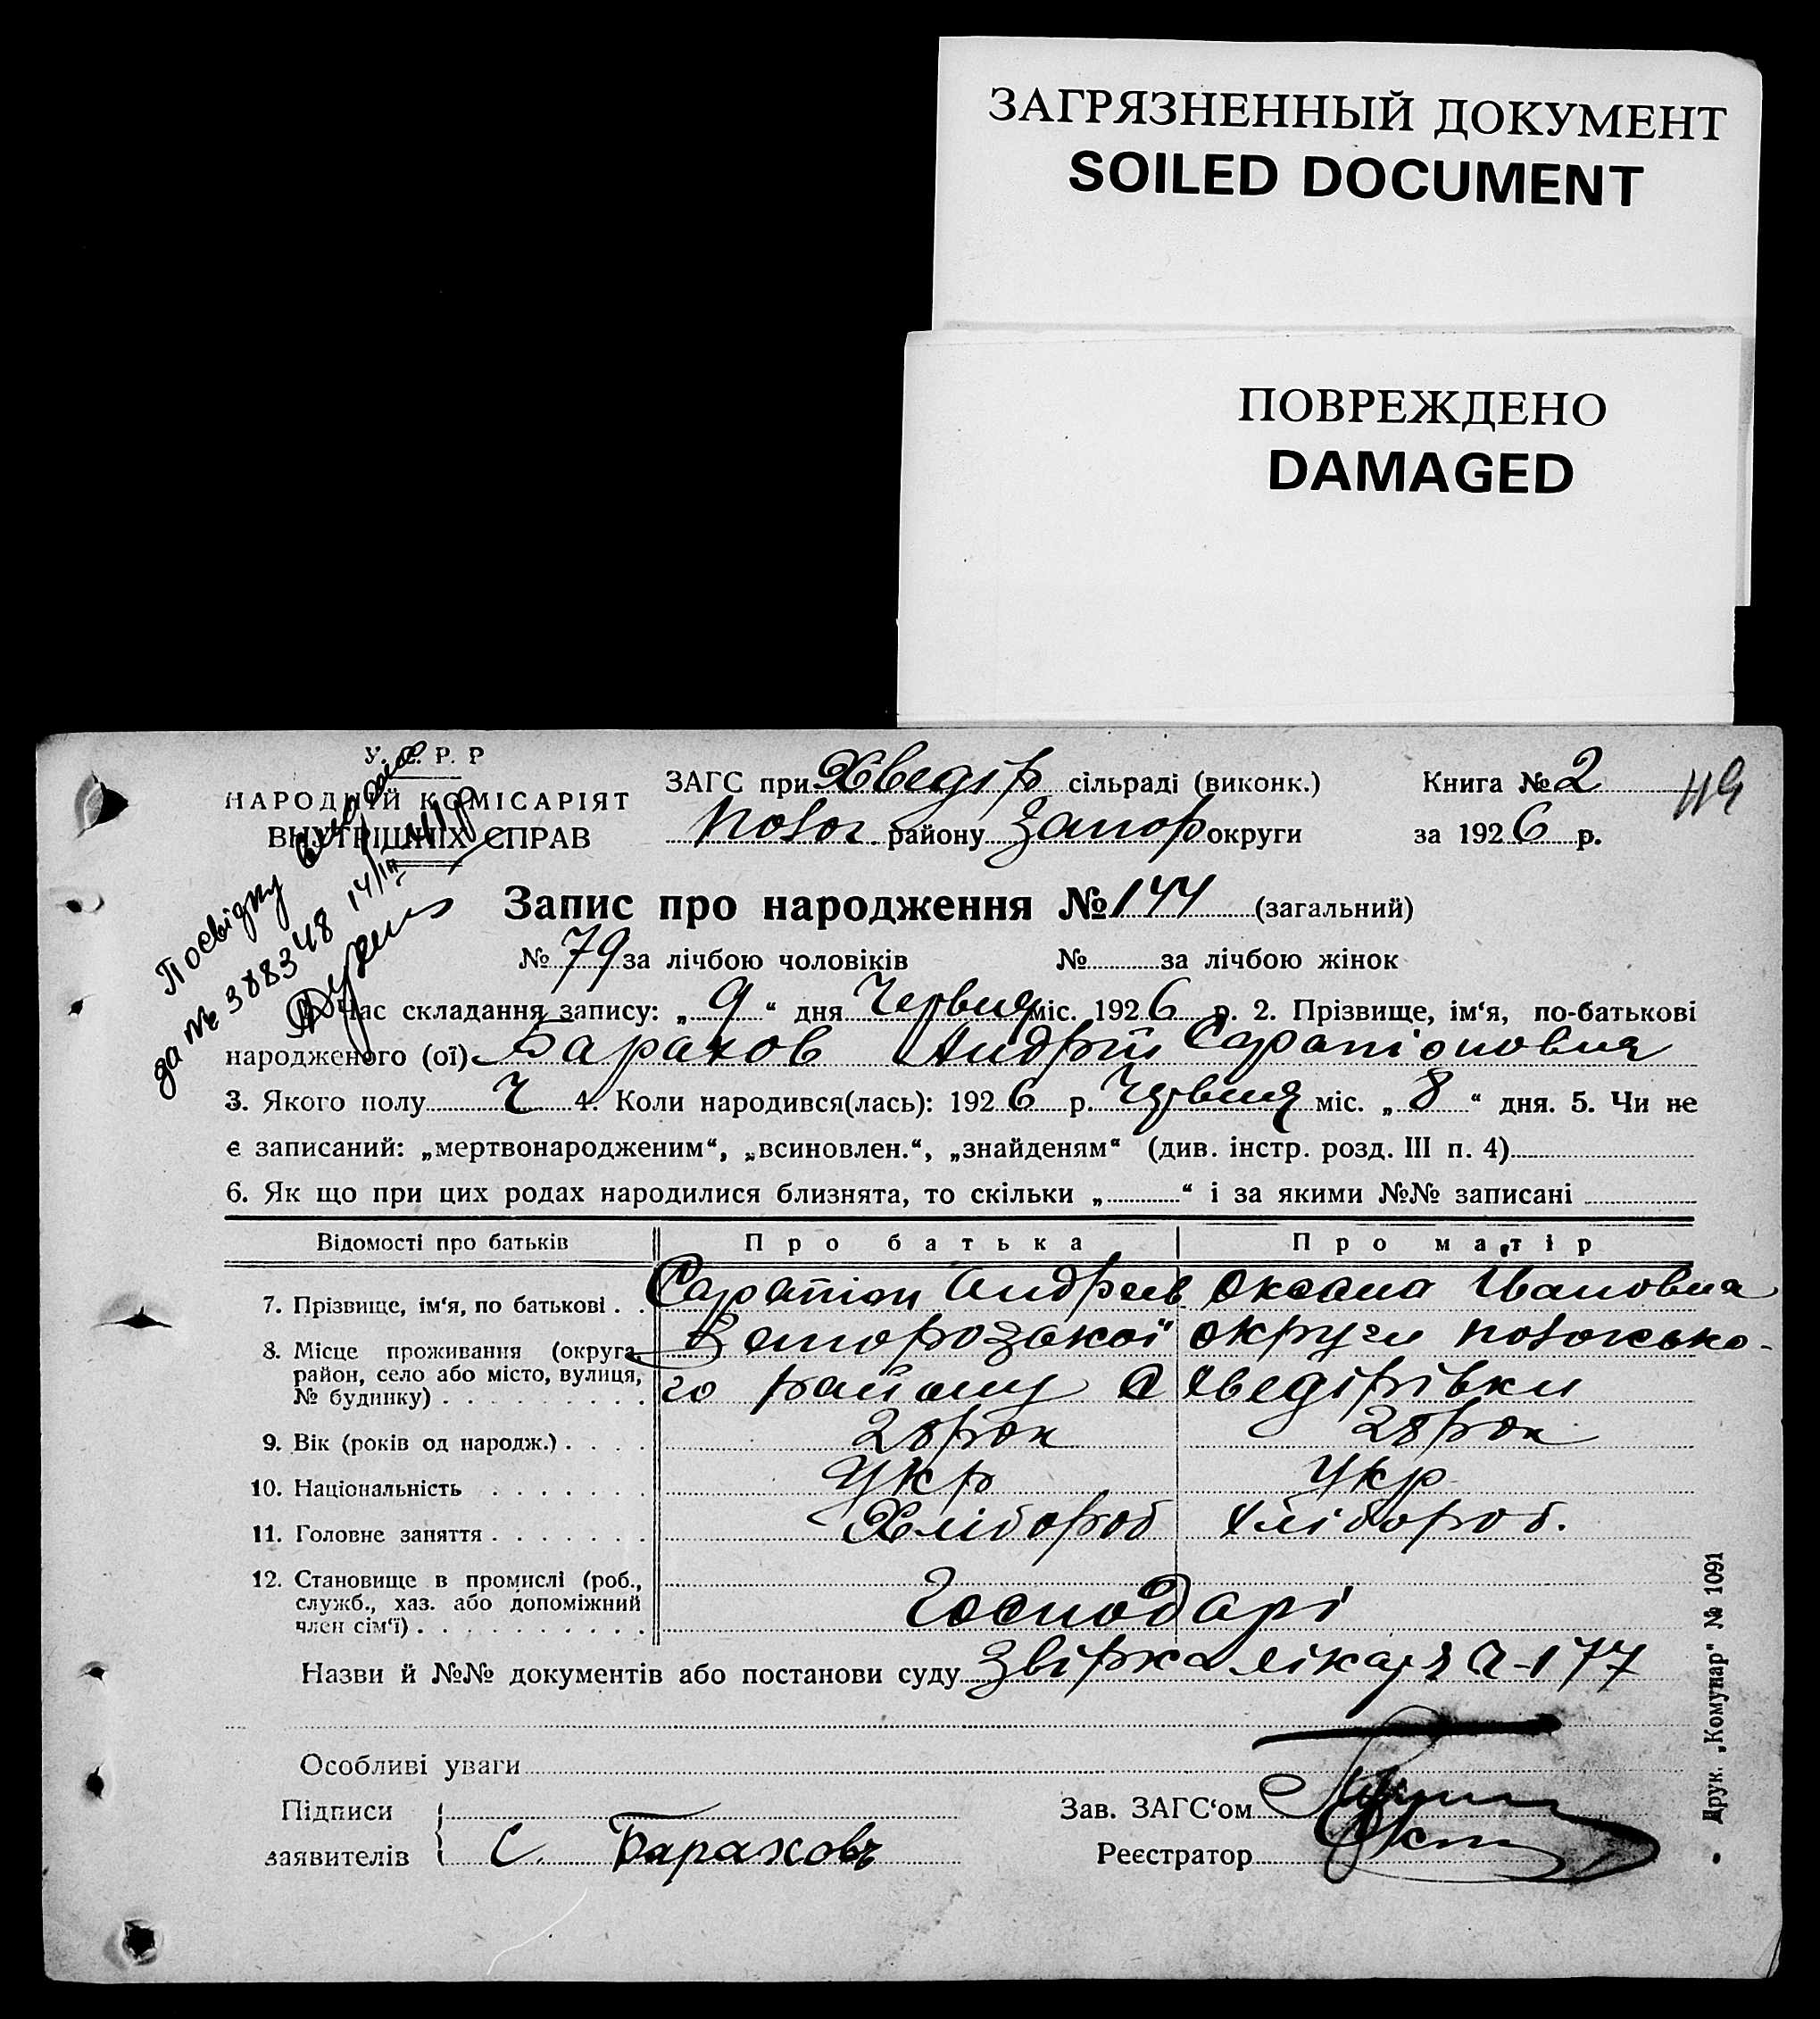 ЗАГРЯЗНЕННЫЙ ДОКУМЕНТ
SOILED DOCUMENT
ПОВРЕЖДЕНО
DAMAGED
У. С. Р. Р
НАРОДНІЙ КОМІСАРІЯТ
ВНУТРІШНІХ СПРАВ
ЗАГС при Хведір сільраді (виконк.) Книга № 2
49
Новог. району Запор округи за 1926 р.
Посвідку видано
за № 388348 14/III
Запис про народження № 144 (загальний)
№ 79 за лічбою чоловіків № за лічбою жінок
Час складання запису: „ 9 “ дня Червня міс. 1926 р. 2. Прізвище, ім‘я, по-батькові
народженого (ої) Барахов Андрій Сарапіоновия
3. Якого полу Ч 4. Коли народився(лась): 1926 р. Червня міс. „ 8 “ дня. 5. Чи не
є записаний: „мертвонародженим“, „всиновлен.“, „знайденям“ (див. інстр. розд. III п. 4)
6. Як що при цих родах народилися близнята, то скільки „ “ і за якими №№ записані
Відомості про батьків Про батька Про матір
7. Прізвище, ім‘я, по батькові . . Сарапіон Андреев Оксана Ивановна
8. Місце проживання (округа, район, село або місто, вулиця, № будинку) Запорозької округи
го району С Хведірівки
9. Вік (років од народж.) . . . . 28 рок 28 рок
10. Національність . . . . . . . Укр Укр
11. Головне заняття . . . . . . . Хлібороб Хлібороб.
12. Становище в промислі (роб.,
служб., хаз. або допоміжний
член сім‘ї) . . . . . . . . . . Господарі
Назви й №№ документів або постанови суду Звірка лікаря 177
Особливі уваги
Підписи
заявителів С. Бараховъ
Зав. ЗАГС‘ом
Реєстратор
Друк. „Комунар“ № 1091